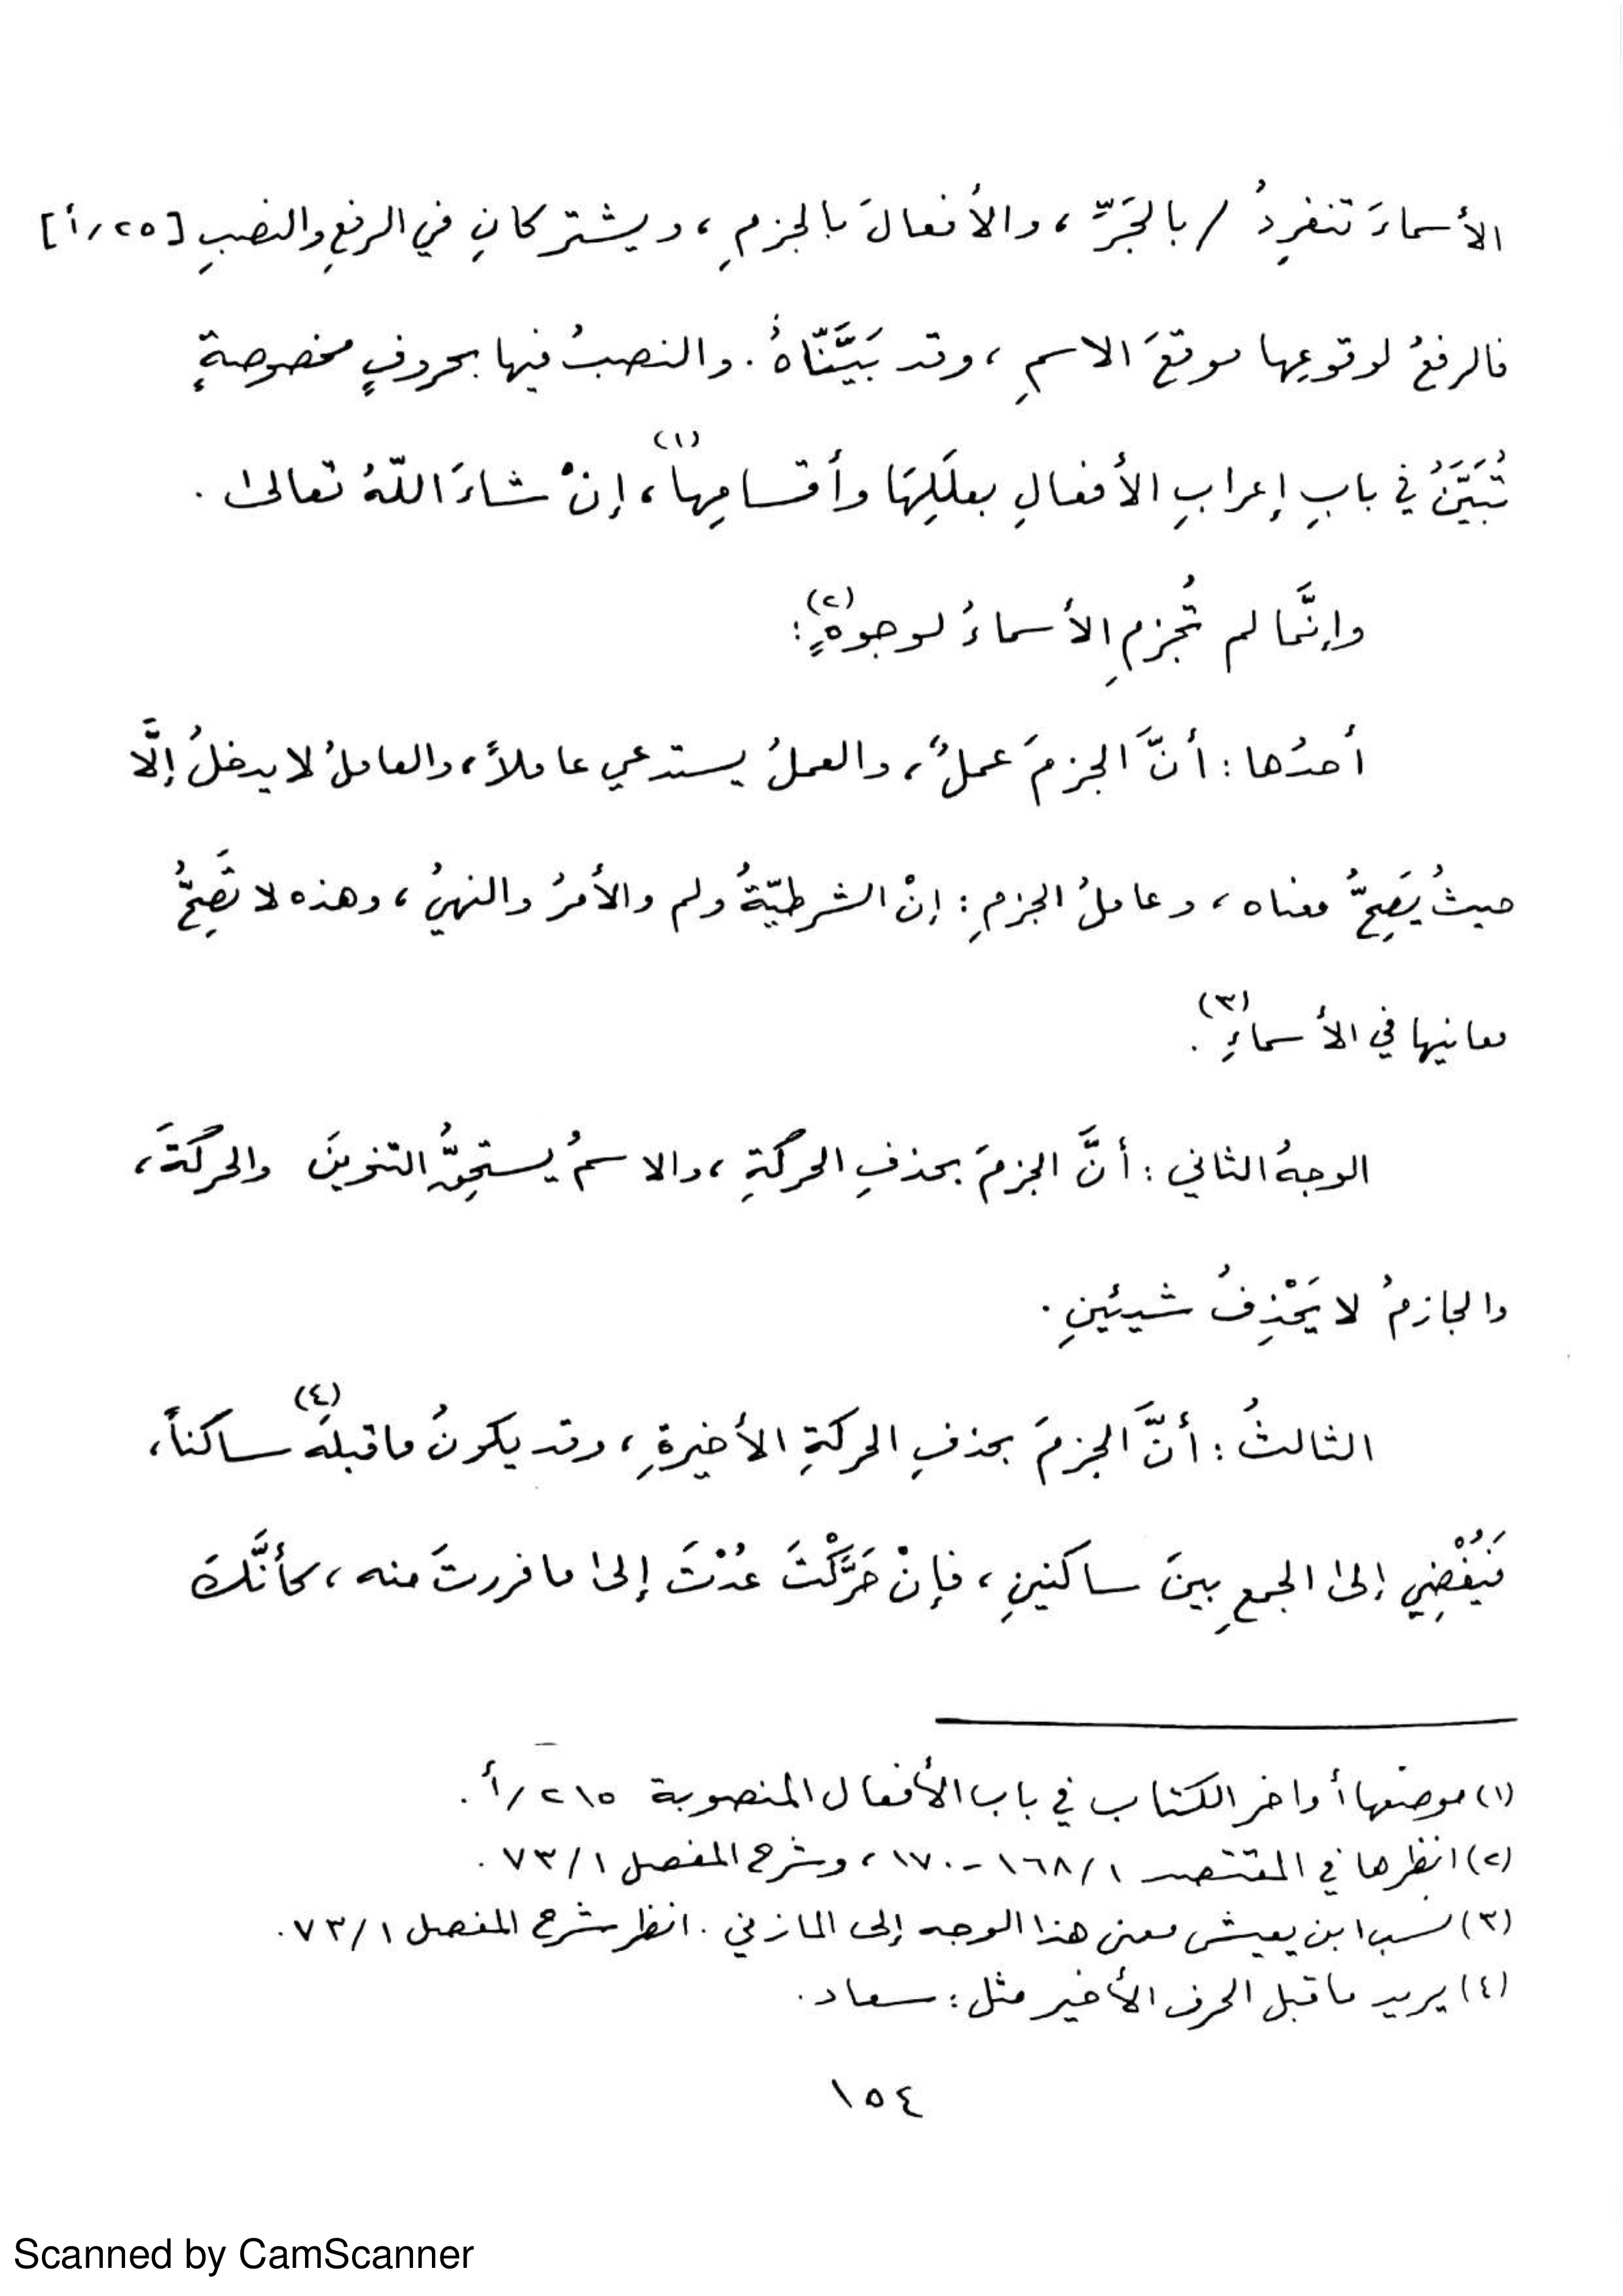 الأسماءَ تنفرِدُ / بالجَرِّ ، والأفعالَ بالجزمِ ، ويشتركانِ في الرفعِ والنصبِ [٢٥/أ]
فالرفعُ لوقوعِها موقعَ الاسمِ ، وقد بَيَّنّاهُ . والنصبُ فيها بحروفٍ مخصوصةٍ
تُبَيَّنُ في بابِ إعرابِ الأفعالِ بعلَلِهَا وأقسامِها(١)، إنْ شاءَ اللّهُ تعالى .
وإنَّما لم تُجزمِ الأسماءُ لوجوهٍ(٢):
أحدُها : أنَّ الجزمَ عملٌ ، والعملُ يستدعي عاملاً ، والعاملُ لا يدخلُ إلَّا
حيثُ يَصِحُّ معناه ، وعاملُ الجزمِ : إنْ الشرطيّةُ ولم والأمرُ والنهيُ ، وهذه لا تَصِحُّ
معانيها في الأسماءِ(٣) .
الوجهُ الثاني : أنَّ الجزمَ بحذفِ الحركةِ ، والاسمُ يستحِقُّ التنوينَ والحركةَ ،
والجازمُ لا يَحْذِفُ شيئينِ .
الثالثُ : أنَّ الجزمَ بحذفِ الحركةِ الأخيرةِ ، وقد يكونُ ما قبلَه(٤) ساكناً ،
فَيُفْضِي إلى الجمعِ بينَ ساكنينِ ، فإنْ حَرَّكْتَ عُدْتَ إلى ما فررتَ منه ، كأنَّكَ
(١) موضعها أواخر الكتاب في باب الأفعال المنصوبة ٢١٥/أ .
(٢) انظرها في المقتصد ١/١٦٨-١٧٠ ، وشرح المفصل ١/٧٣ .
(٣) نسب ابن يعيش معنى هذا الوجه إلى المازني . انظر شرح المفصل ١/٧٣ .
(٤) يريد ما قبل الحرف الأخير مثل : سعاد .
١٥٤
Scanned by CamScanner